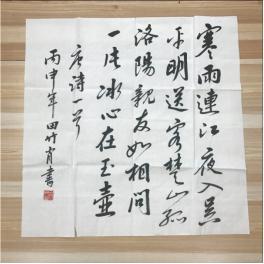 寒雨連江夜入吴
平明送客楚山孤
洛陽親友如相問
一片冰心在玉壺
唐诗一首
丙申年田竹肖書